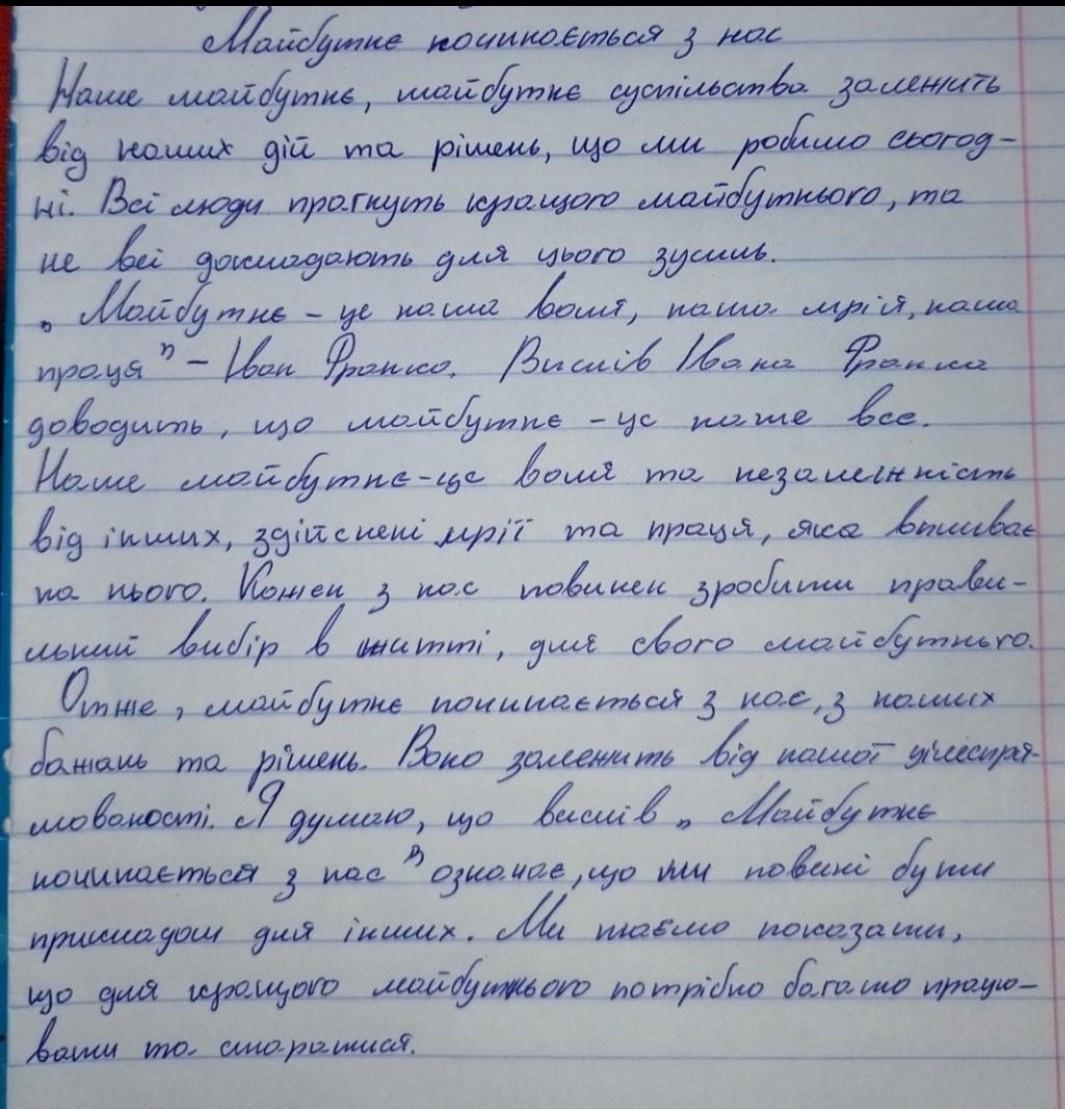 Майбутнє починається з нас
Наше майбутнє, майбутнє суспільства залежить
від наших дій та рішень, що ми робимо сьогод-
ні. Всі люди прагнуть кращого майбутнього, та
не всі докладають для цього зусиль.
„ Майбутнє – це наша воля, наша мрія, наша
праця" – Іван Франко. Вислів Івана Франка
доводить, що майбутнє – це наше все.
Наше майбутнє – це воля та незалежність
від інших, здійснені мрії та праця, яка впливає
на нього. Кожен з нас повинен зробити прави-
льний вибір в житті, для свого майбутнього.
Отже, майбутнє починається з нас, з наших
бажань та рішень. Воно залежить від нашої цілеспря-
мованості. Я думаю, що вислів „ Майбутнє
починається з нас " означає, що ми повині бути
прикладом для інших. Ми маємо показати,
що для кращого майбутнього потрібно багато працю-
вати та старатися.